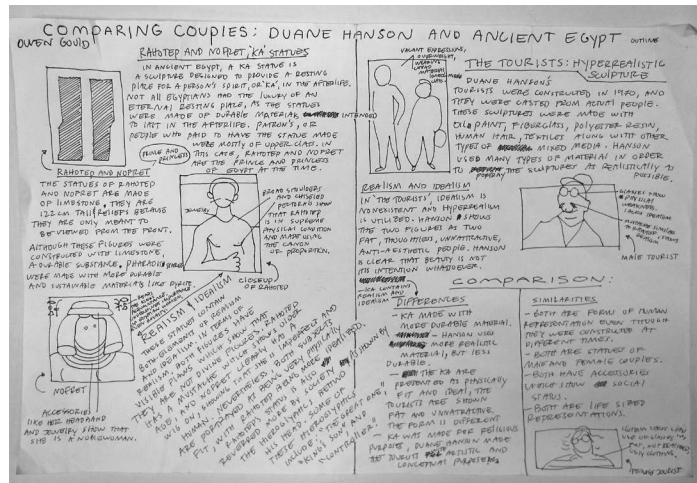 COMPARING COUPLES: DUANE HANSON AND ANCIENT EGYPT
OUTLINE
OWEN GOULD
RAHOTEP AND NOFRET, 'KA' STATUES
IN ANCIENT EGYPT, A KA STATUE IS
A SCULPTURE DESIGNED TO PROVIDE A RESTING
PLACE FOR A PERSON'S SPIRIT, OR 'KA', IN THE AFTERLIFE.
NOT ALL EGYPTIANS HAD THE LUXURY OF AN
ETERNAL RESTING PLACE, AS THE STATUES
WERE MADE OF DURABLE MATERIAL INTENDED
TO LAST IN THE AFTERLIFE. PATRON'S, OR
PEOPLE WHO PAID TO HAVE THE STATUE MADE
WERE MOSTLY OF UPPERCLASS. IN
THIS CASE, RAHOTEP AND NOFRET
ARE THE PRINCE AND PRINCESS
OF EGYPT AT THE TIME.
PRINCE AND
PRINCESS
RAHOTEP AND NOFRET
THE STATUES OF RAHOTEP
AND NOFRET ARE MADE
OF LIMESTONE. THEY ARE
122CM TALL RELIEFS BECAUSE
THEY ARE ONLY MEANT TO
BE VIEWED FROM THE FRONT.
ALTHOUGH THESE FIGURES WERE
CONSTRUCTED WITH LIMESTONE,
A DURABLE SUBSTANCE, PHARAOHS
WERE MADE WITH MORE DURABLE
AND SUSTAINABLE MATERIALS LIKE
JEWELRY
BROAD SHOULDERS
AND CHISELED
PECTORALS SHOW
THAT RAHOTEP
IS IN SUPREME
PHYSICAL CONDITION
AND MADE USING
THE CANON
OF PROPORTION.
CLOSEUP
OF RAHOTEP
NOFRET
ACCESSORIES
LIKE HER HEADBAND
AND JEWELRY SHOW THAT
SHE IS A NOBLEWOMAN.
REALISM & IDEALISM
THESE STATUES CONTAIN
BOTH ELEMENTS OF REALISM
AND IDEALISM. IN TERMS OF
REALISM, BOTH FIGURES HAVE
VISIBLE FLAWS WHICH SHOW THAT
THEY ARE NOT DIVINE FIGURES. RAHOTEP
HAS A MUSTACHE WHICH SHOWS HIS
AGE AND NOFRET
WIG ON, SHOWING THAT SHE IS IMPERFECT AND
HUMAN. NEVERTHELESS, BOTH SUBJECTS
ARE PORTRAYED AS BEING VERY PHYSICALLY
FIT, WITH RAHOTEP BEING MORE IDEALISED.
RAHOTEP'S STATUE IS ALSO
REVERED MORE BY SOCIETY AS SHOWN BY
THE HIEROGLYPHICS BEHIND
HIS HEAD. SOME OF WHICH
INCLUDE: "THE GREAT ONE,"
"KING'S SON," AND
"CONTROLLER."
VACANT EXPRESSIONS,
OVERWEIGHT,
THE TOURISTS: HYPERREALISTIC
SCULPTURE
DUANE HANSON'S
TOURISTS WERE CONSTRUCTED IN 1970, AND
THEY WERE CASTED FROM ACTUAL PEOPLE.
THESE SCULPTURES WERE MADE WITH
OIL PAINT, FIBERGLASS, POLYESTER RESIN,
HUMAN HAIR, TEXTILES ALONG WITH OTHER
TYPES OF MIXED MEDIA. HANSON
USED MANY TYPES OF MATERIAL IN ORDER
TO PORTRAY THE SCULPTURES AS REALISTICALLY AS
POSSIBLE.
REALISM AND IDEALISM
IN 'THE TOURISTS', IDEALISM IS
NONEXISTENT AND HYPERREALISM
IS UTILIZED. HANSON SHOWS
THE TWO FIGURES AS TWO
FAT, THOUGHTLESS, UNATTRACTIVE,
ANTI-AESTHETIC PEOPLE. HANSON
IS CLEAR THAT BEAUTY IS NOT
HIS INTENTION WHATSOEVER.
-KA CONTAINS
REALISM AND
IDEALISM
GLASSES SHOW
PHYSICAL
MALE TOURIST
COMPARISON:
DIFFERENCES
- KA MADE WITH
MORE DURABLE MATERIAL.
HANSON USED
MORE REALISTIC
MATERIAL, BUT LESS
DURABLE.
- THE KA ARE
PRESENTED AS PHYSICALLY
FIT AND IDEAL, THE
TOURISTS ARE SHOWN
FAT AND UNATTRACTIVE.
THE FORM IS DIFFERENT
- KA WAS MADE FOR RELIGIOUS
PURPOSE, DUANE HANSON MADE
THE TOURISTS FOR ARTISTIC AND
CONCEPTUAL PURPOSES.
SIMILARITIES
- BOTH ARE FORMS OF HUMAN
REPRESENTATION EVEN THOUGH
THEY WERE CONSTRUCTED AT
DIFFERENT TIMES.
- BOTH ARE STATUES OF
MALE AND FEMALE COUPLES.
- BOTH HAVE ACCESSORIES
WHICH SHOW SOCIAL
STATUS.
- BOTH ARE LIFE SIZED
REPRESENTATIONS.
FEMALE TOURIST